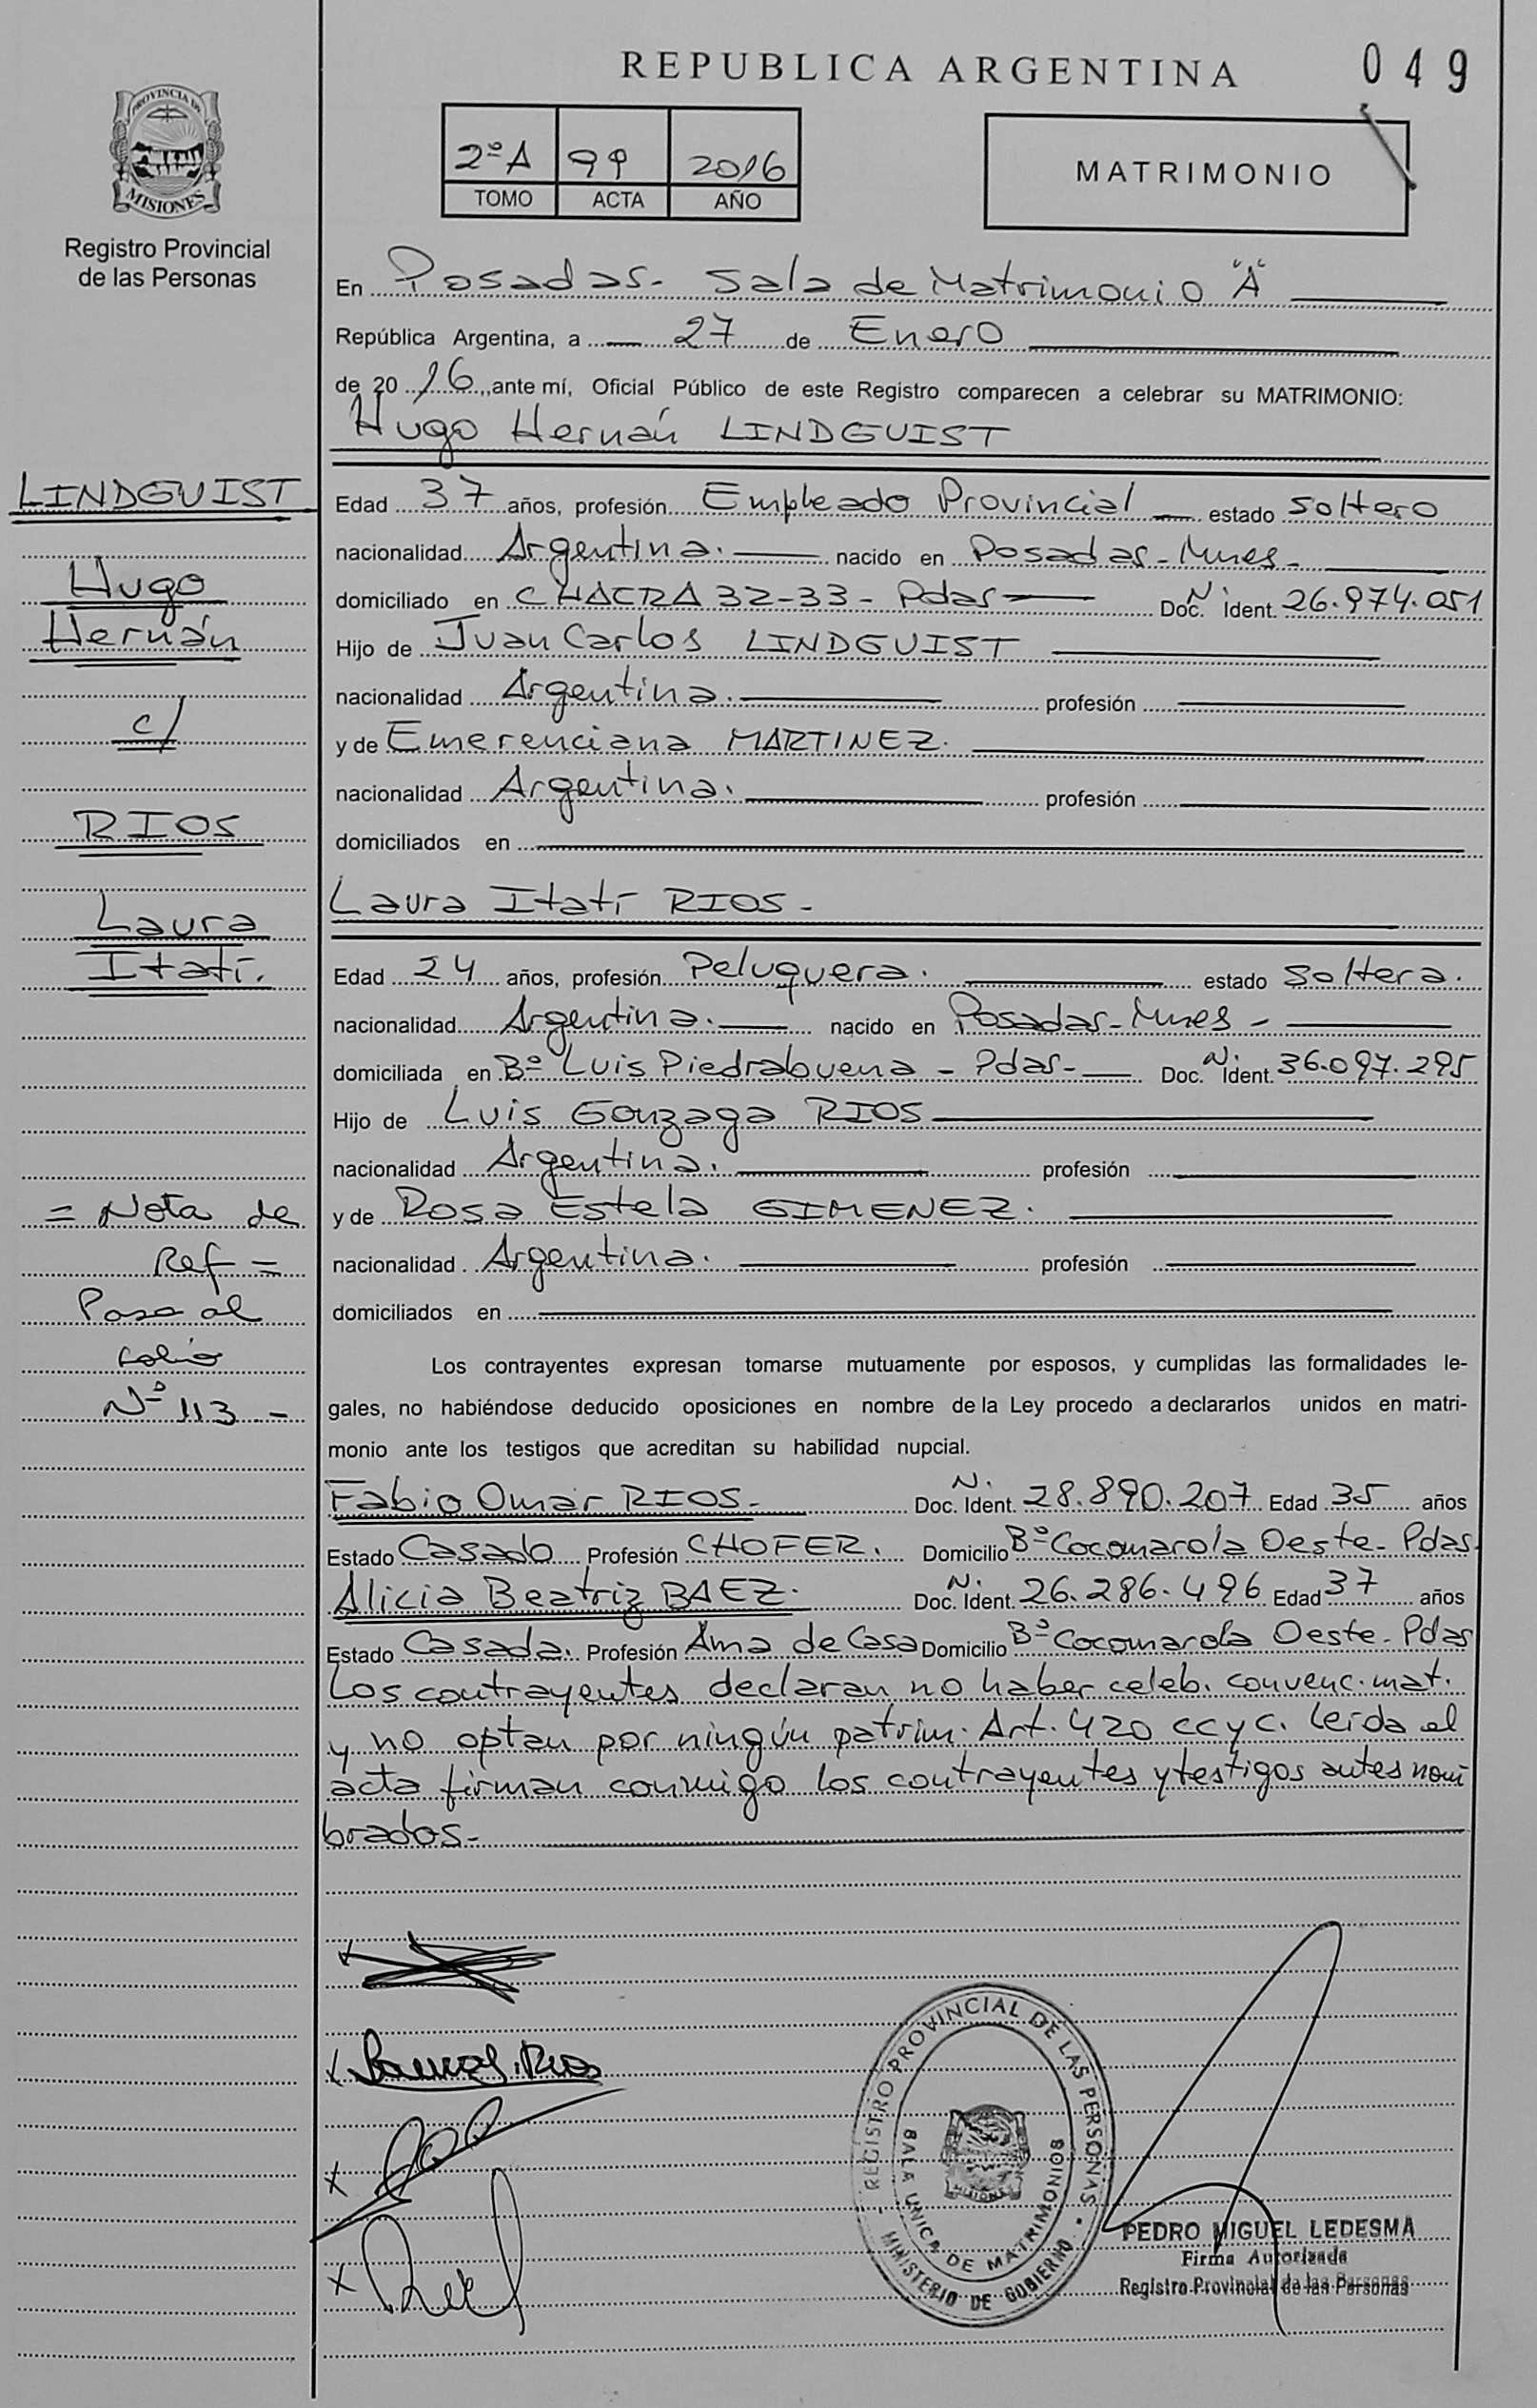 REPUBLICA ARGENTINA
049
PROVINCIA DE
MISIONES
Registro Provincial
de las Personas
2ºA 99 2016
TOMO ACTA AÑO
MATRIMONIO
En Posadas- Sala de Matrimonio "A"
República Argentina, a 27 de Enero
de 2016, ante mí, Oficial Público de este Registro comparecen a celebrar su MATRIMONIO:
Hugo Hernán LINDGUIST
LINDGUIST
Hugo
Hernán
c/
RIOS
Laura
Itatí.
Edad 37 años, profesión Empleado Provincial estado Soltero
nacionalidad Argentina. nacido en Posadas-Mnes-
domiciliado en CHACRA 32-33- Pdas Doc. N. Ident. 26.974.051
Hijo de Juan Carlos LINDGUIST
nacionalidad Argentina. profesión
y de Emerenciana MARTINEZ.
nacionalidad Argentina. profesión
domiciliados en
Laura Itatí RIOS-
Edad 24 años, profesión Peluquera. estado Soltera.
nacionalidad Argentina. nacido en Posadas-Mnes-
domiciliada en Bº Luis Piedrabuena - Pdas- Doc. N. Ident. 36.097.295
Hijo de Luis Gonzaga RIOS
nacionalidad Argentina. profesión
y de Rosa Estela GIMENEZ.
nacionalidad Argentina. profesión
domiciliados en
= Nota de
Ref =
Pasa al
folio
Nº 113-
Los contrayentes expresan tomarse mutuamente por esposos, y cumplidas las formalidades le-
gales, no habiéndose deducido oposiciones en nombre de la Ley procedo a declararlos unidos en matri-
monio ante los testigos que acreditan su habilidad nupcial.
Fabio Omar RIOS- Doc. N. Ident. 28.890.207 Edad 35 años
Estado Casado Profesión CHOFER. Domicilio Bº Cocomarola Oeste- Pdas.
Alicia Beatriz BAEZ. Doc. N. Ident. 26.286.496 Edad 37 años
Estado Casada. Profesión Ama de Casa Domicilio Bº Cocomarola Oeste- Pdas
Los contrayentes declaran no haber celeb. convenc. mat.
y no optan por ningún patrim. Art. 420 CCyC. Leída el
acta firman conmigo los contrayentes y testigos antes nom
brados-
REGISTRO PROVINCIAL DE LAS PERSONAS
SALA UNICA DE MATRIMONIOS
MISIONES
MINISTERIO DE GOBIERNO
PEDRO MIGUEL LEDESMA
Firma Autorizada
Registro Provincial de las Personas